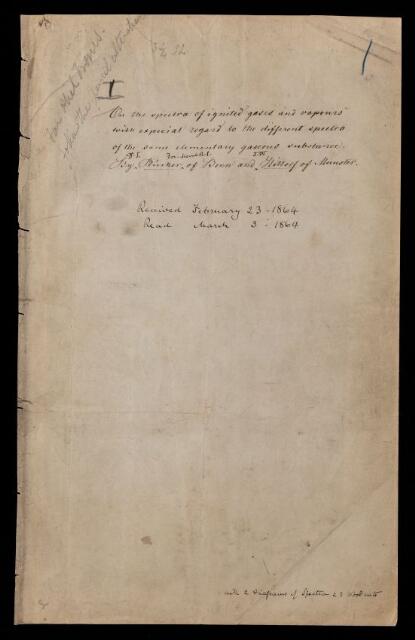 I
On the spectra of ignited gases and vapours
with especial regard to the different spectra
of the same elementary gaseous substance.
By Plücker, of Bonn and Hittorf of Munster.
Received February 23 - 1864
Read March 3 - 1864
with 2 Diagrams of Spectra & 3 Woodcuts